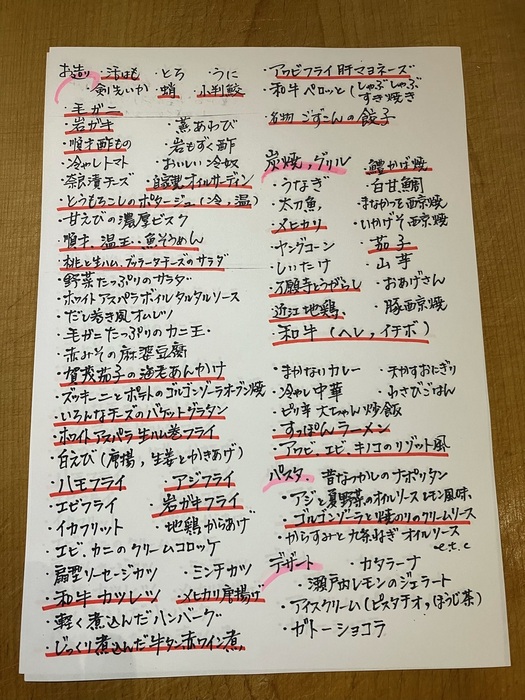 お造り ・活はも ・とろ ・うに
・剣先いか ・蛸 ・小判鮫
・毛ガニ
・岩ガキ ・蒸あわび
・順才酢もの ・岩もずく酢
・冷やしトマト ・おいしい冷奴
・奈良漬チーズ ・自家製オイルサーディン
・とうもろこしのポタージュ(冷、温)
・甘えびの濃厚ビスク
・順才、温玉、魚そうめん
・桃と生ハム、ブッラータチーズのサラダ
・野菜たっぷりのサラダ
・ホワイトアスパラボイルタルタルソース
・だし巻き風オムレツ
・毛ガニたっぷりのカニ玉・
・赤みその麻婆豆腐
・賀茂茄子の海老あんかけ
・ズッキーニとポテトのゴルゴンゾーラオーブン焼
・いろんなチーズのバケットグラタン
・ホワイトアスパラ生ハム巻フライ
・白えび(唐揚、生姜とかきあげ)
・ハモフライ ・アジフライ
・エビフライ ・岩ガキフライ
・イカフリット ・地鶏からあげ
・エビ、カニのクリームコロッケ
・扁型ソーセージカツ ・ミンチカツ
・和牛カツレツ ・メヒカリ唐揚げ
・軽く煮込んだハンバーグ
・じっくり煮込んだ牛タン赤ワイン煮、
・アワビフライ肝マヨネーズ
・和牛ペロッと(しゃぶしゃぶ
すき焼き
・名物 ごずこんの餃子
炭焼、グリル ・鱧かば焼
・うなぎ ・白甘鯛
・太刀魚、 ・まながつを西京焼
・メヒカリ ・いかげそ西京焼
・ヤングコーン ・茄子
・しいたけ ・山芋
・万願寺とうがらし ・おあげさん
・近江地鶏、 ・豚西京焼
・和牛(ヘレ、イチボ)
・まかないカレー ・天かすおにぎり
・冷やし中華 ・わさびごはん
・ピリ辛 大ちゃん炒飯
・すっぽんラーメン
・アワビ、エビ、キノコのリゾット風
パスタ ・昔なつかしのナポリタン
・アジと夏野菜のオイルソースレモン風味、
・ゴルゴンゾーラと焼のりのクリームソース
・からすみと九条ねぎオイルソース
e.t.c
デザート ・カタラーナ
・瀬戸内レモンのジェラート
・アイスクリーム(ピスタチオ、ほうじ茶)
・ガトーショコラ